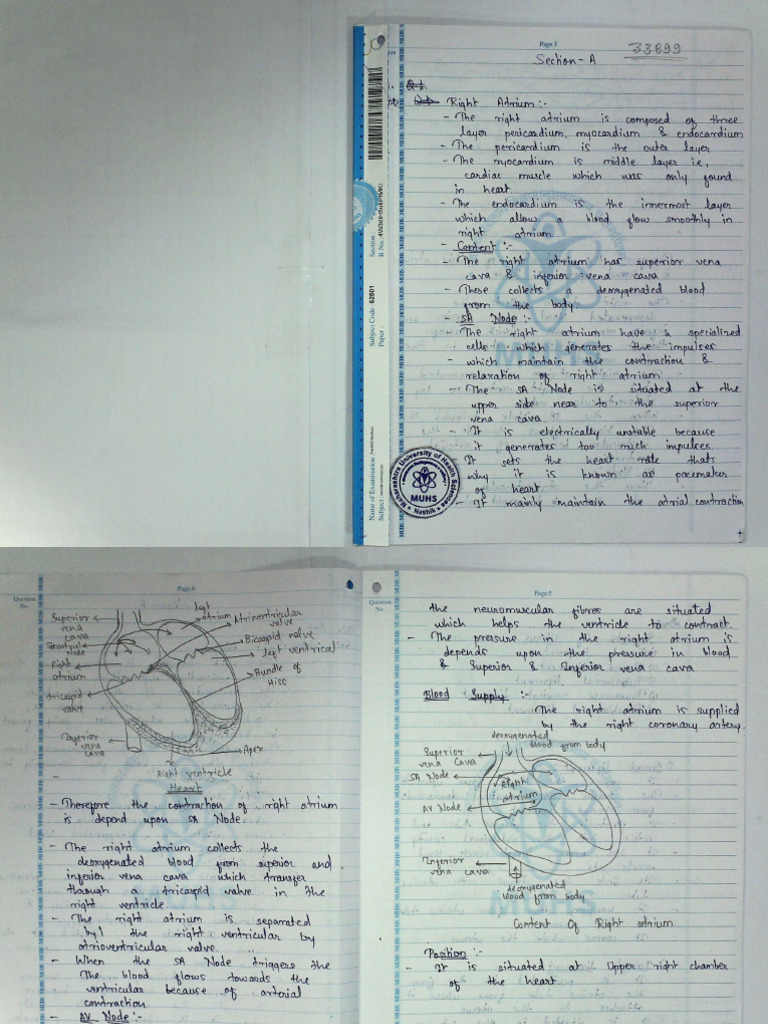 Page 3
33899
Section - A
Right Atrium :-
- The right atrium is composed of three
layer pericardium, myocardium & endocardium
- The pericardium is the outer layer
- The myocardium is middle layer i.e,
cardiac muscle which was only found
in heart
- The endocardium is the innermost layer
which allow a blood flow smoothly in
right atrium
- Content :-
- The right atrium has superior vena
cava & inferior vena cava
- These collects a deoxygenated blood
from the body.
- SA Node :-
- The right atrium have a specialized
cells which generates the impulses
- which maintain the contraction &
relaxation of right atrium
- The SA Node is situated at the
upper side near to the superior
vena cava
- It is electrically unstable because
it generates too much impulses
- It sets the heart rate thats
why it is known as pacemaker
of heart
- It mainly maintain the atrial contraction
Section :
B. No.
Subject Code : 62601
Paper :
Name of Examination :
Subject :
Maharashtra University of Health Sciences
MUHS
Nashik
Question
No.
Page 4
Superior
vena
cava
left
atrium
Atrioventricular
valve
Bicaspid valve
left ventrical
Bundle of
Hiss
Node
Right
atrium
tricaspid
valve
Inferior
vena
cava
Apex
Right ventricle
Heart
- Therefore the contraction of right atrium
is depend upon SA Node.
- The right atrium collects the
deoxygenated blood from superior and
inferior vena cava which transfer
through a tricaspid valve in the
right ventricle.
- The right atrium is separated
by the right ventricular by
atrioventricular valve.
- When the SA Node triggers the
The blood flows towards the
ventricular because of arterial
contraction.
- AV Node :-
Question
No.
Page 5
the neuromuscular fibres are situated
which helps the ventricle to contract.
- The pressure in the right atrium is
depends upon the pressure in blood
& Superior & Inferior vena cava
Blood Supply :-
The right atrium is supplied
by the right coronary artery.
deoxygenated
blood from body
Superior
vena cava
SA Node
Right
atrium
AV Node
Inferior
vena cava
deoxygenated
blood from body
Content Of Right atrium
Position :-
- It is situated at Upper right chamber
of the heart.